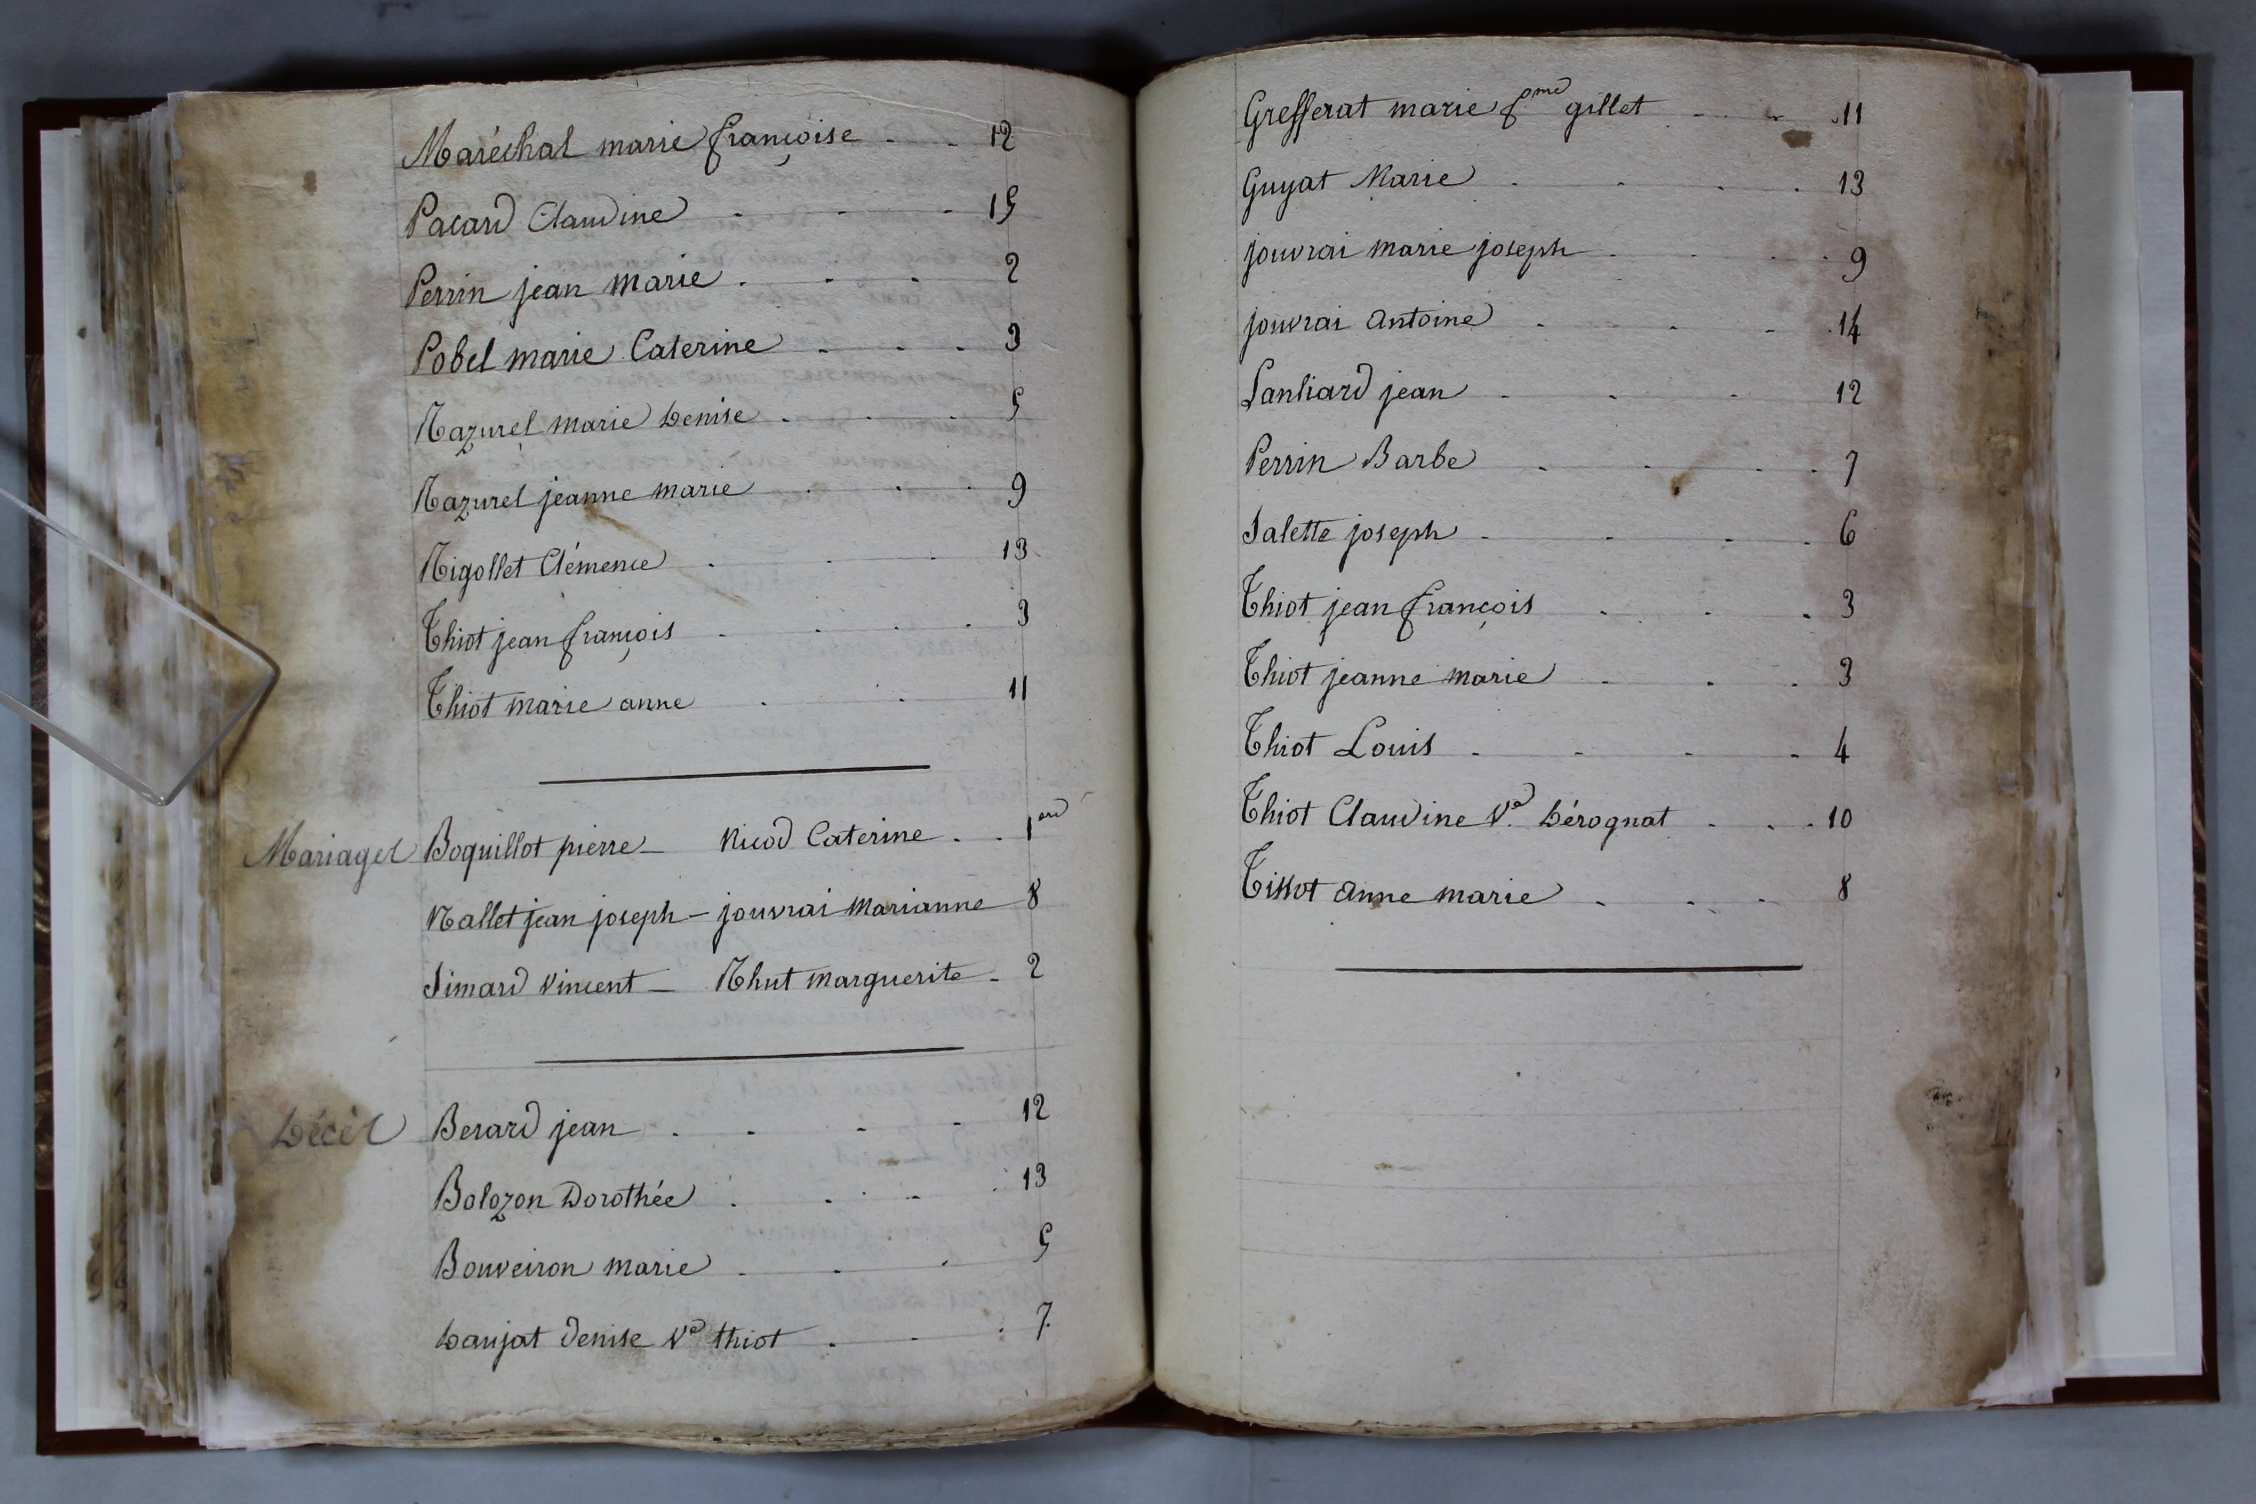 Maréchal marie françoise . . 12
Pacard Claudine . . . 15
Perrin jean marie . . . 2
Pobel marie Caterine . . . 3
Razurel marie Denise . . . 5
Razurel jeanne marie . . . 9
Rigollet Clémence . . . 13
Thiot jean françois . . . . 3
Thiot marie anne . . 11
Mariages Boquillot pierre — Nicod Caterine . . 1er
Rallet jean joseph — jouvrai Marianne 8
Simard Vincent — Rhut marguerite - 2
Décès Berard jean . . . . 12
Bolozon Dorothée . . . . 13
Bouveiron marie . . . 5
Daujat Denise Ve thiot . . . 7.
Grefferat marie fme gillet . . . 11
Guyat Marie . . . . 13
jouvrai marie joseph . . . . 9
jouvrai Antoine . . . . 14
Lanliard jean . . . 12
Perrin Barbe . . . 7
Salette joseph . . . . 6
Thiot jean françois . . . 3
Thiot jeanne marie . . . 3
Thiot Louis . . . . 4
Thiot Claudine Ve Dérognat . . . 10
Tissot anne marie . . . 8